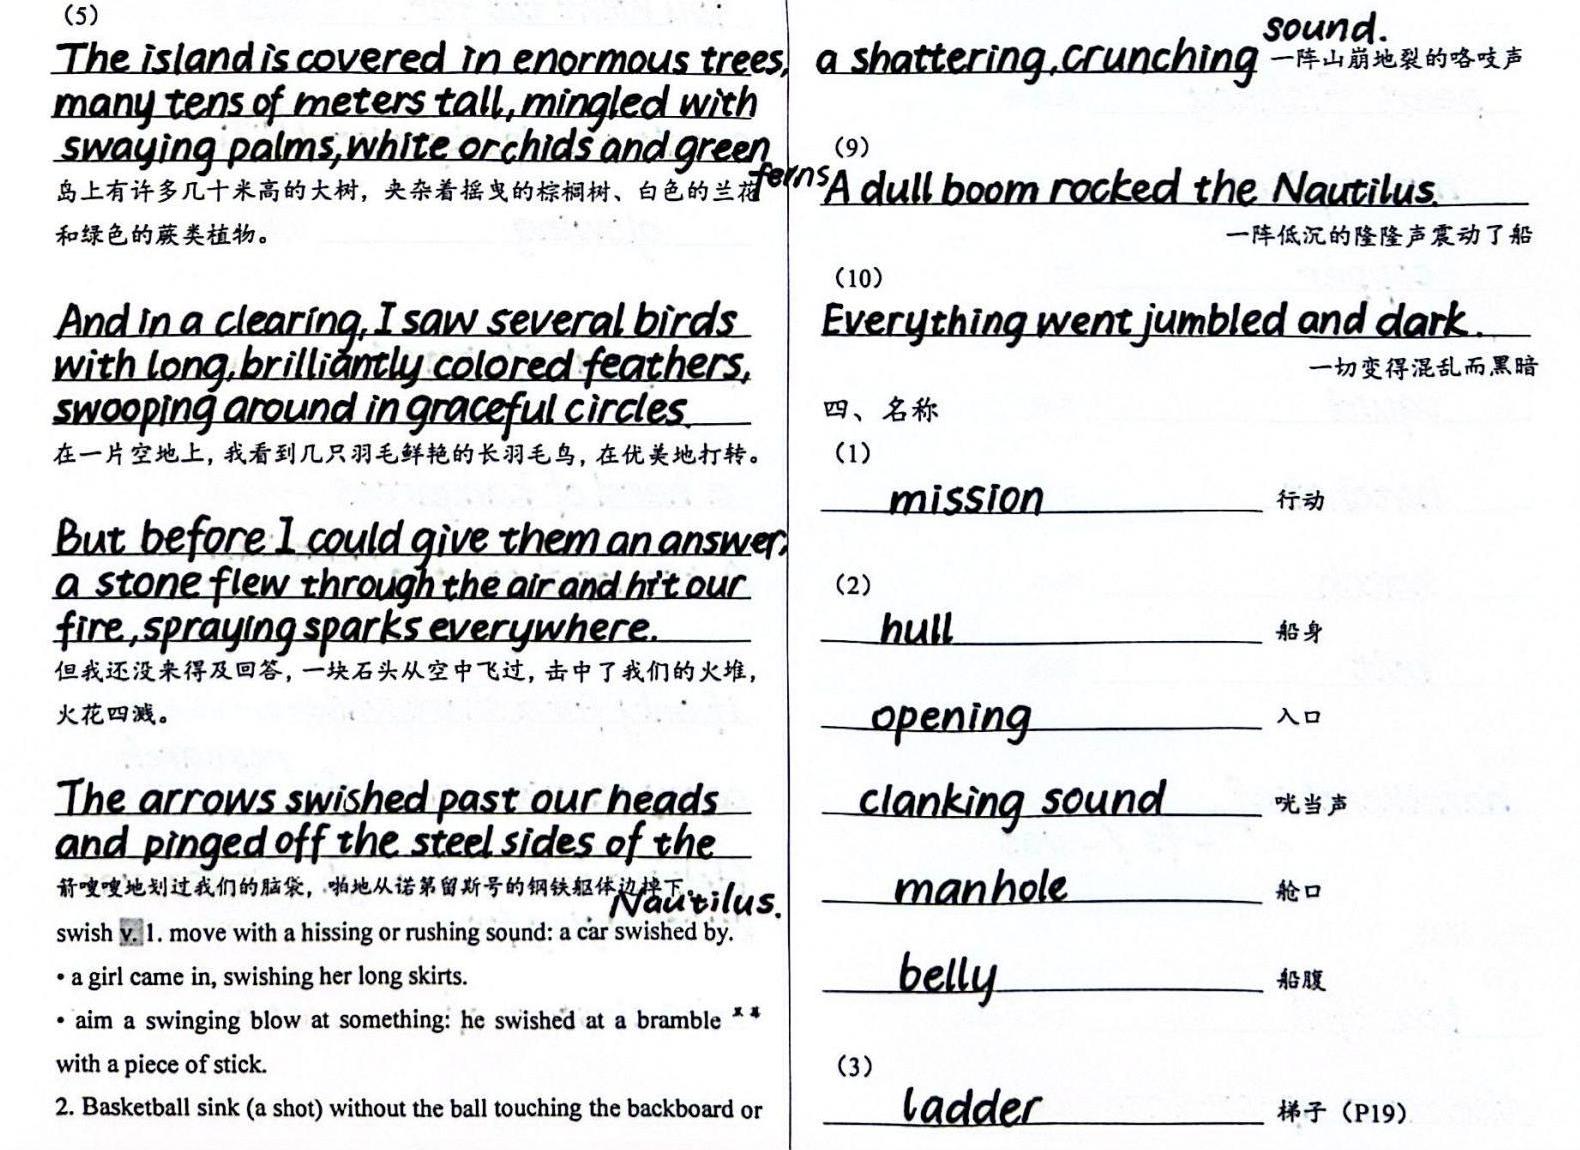 (5)
The island is covered in enormous trees,
many tens of meters tall, mingled with
swaying palms, white orchids and green
ferns
岛上有许多几十米高的大树，夹杂着摇曳的棕榈树、白色的兰花
和绿色的蕨类植物。
And in a clearing, I saw several birds
with long, brilliantly colored feathers,
swooping around in graceful circles.
在一片空地上，我看到几只羽毛鲜艳的长羽毛鸟，在优美地打转。
But before I could give them an answer,
a stone flew through the air and hit our
fire, spraying sparks everywhere.
但我还没来得及回答，一块石头从空中飞过，击中了我们的火堆，
火花四溅。
The arrows swished past our heads
and pinged off the steel sides of the
Nautilus.
箭嗖嗖地划过我们的脑袋，啪地从诺第留斯号的钢铁躯体边掉下。
swish v. 1. move with a hissing or rushing sound: a car swished by.
• a girl came in, swishing her long skirts.
• aim a swinging blow at something: he swished at a bramble
with a piece of stick.
2. Basketball sink (a shot) without the ball touching the backboard or
a shattering, crunching
sound.
一阵山崩地裂的咯吱声
(9)
A dull boom rocked the Nautilus.
一阵低沉的隆隆声震动了船
(10)
Everything went jumbled and dark.
一切变得混乱而黑暗
四、名称
(1)
mission 行动
(2)
hull 船身
opening 入口
clanking sound 咣当声
manhole 舱口
belly 船腹
(3)
ladder 梯子（P19）